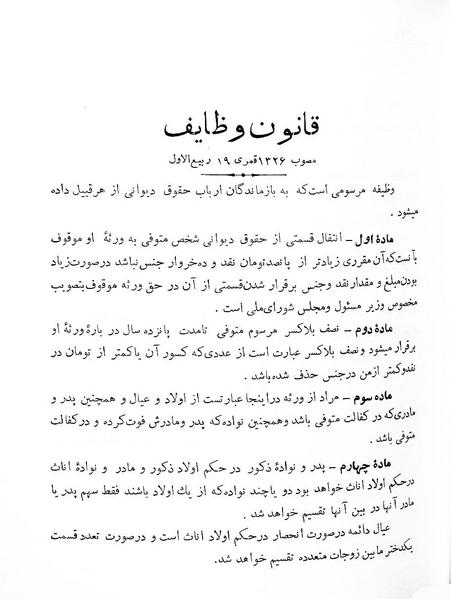 قانون وظایف
مصوب ۱۳۲۶ قمری ۱۹ ربیع‌الاول
وظیفه مرسومی است که به بازماندگان ارباب حقوق دیوانی از هر قبیل داده
میشود .
مادهٔ اول – انتقال قسمتی از حقوق دیوانی شخص متوفی به ورثهٔ او موقوف
بآنست که آن مقرری زیادتر از پانصد تومان نقد و ده خروار جنس نباشد درصورت زیاد
بودن مبلغ و مقدار نقد و جنس برقرار شدن قسمتی از آن در حق ورثه موقوف بتصویب
مخصوص وزیر مسئول ومجلس شورای ملی است .
مادهٔ دوم – نصف بلاکسر مرسوم متوفی تامدت پانزده سال در بارهٔ ورثهٔ او
برقرار میشود و نصف بلاکسر عبارت است از عددی که کسور آن یاکمتر از تومان در
نقد وکمتر ازمن درجنس حذف شده باشد .
ماده سوم – مراد از ورثه دراینجا عبارتست از اولاد و عیال و همچنین پدر و
مادری که در کفالت متوفی باشد وهمچنین نواده که پدر ومادرش فوت کرده و در کفالت
متوفی باشد .
مادهٔ چهارم – پدر و نوادهٔ ذکور در حکم اولاد ذکور و مادر و نوادهٔ اناث
درحکم اولاد اناث خواهد بود دو یاچند نواده که از یك اولاد باشند فقط سهم پدر یا
مادر آنها در بین آنها تقسیم خواهد شد .
عیال دائمه درصورت انحصار درحکم اولاد اناث است و درصورت تعدد قسمت
یکدختر مابین زوجات متعدده تقسیم خواهد شد.